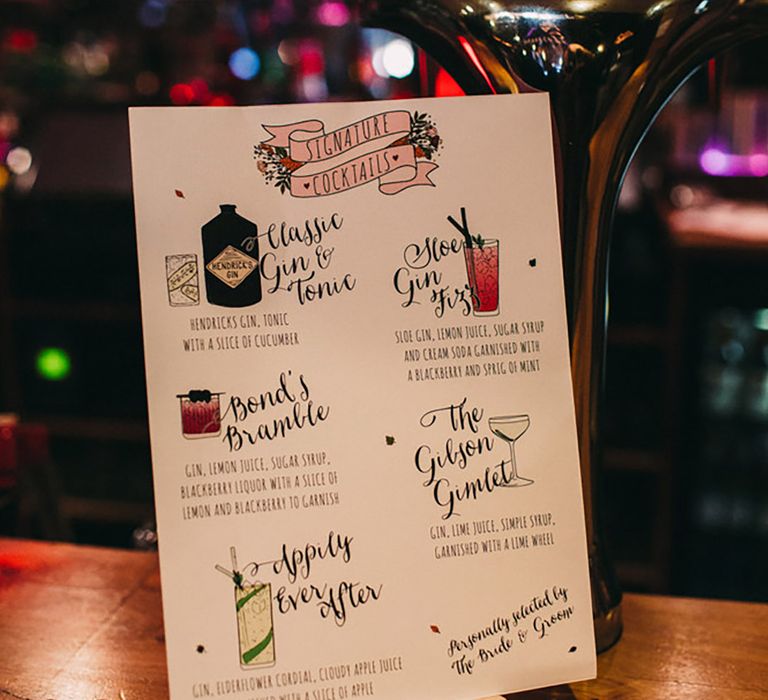 SIGNATURE
COCKTAILS
HENDRICK'S
GIN
Classic
Gin &
Tonic
HENDRICKS GIN, TONIC
WITH A SLICE OF CUCUMBER
Sloe
Gin
Fizz
SLOE GIN, LEMON JUICE, SUGAR SYRUP
AND CREAM SODA GARNISHED WITH
A BLACKBERRY AND SPRIG OF MINT
Bond's
Bramble
GIN, LEMON JUICE, SUGAR SYRUP,
BLACKBERRY LIQUOR WITH A SLICE OF
LEMON AND BLACKBERRY TO GARNISH
The
Gibson
Gimlet
GIN, LIME JUICE, SIMPLE SYRUP,
GARNISHED WITH A LIME WHEEL
Appily
Ever
After
GIN, ELDERFLOWER CORDIAL, CLOUDY APPLE JUICE
GARNISHED WITH A SLICE OF APPLE
Personally selected by
The Bride & Groom